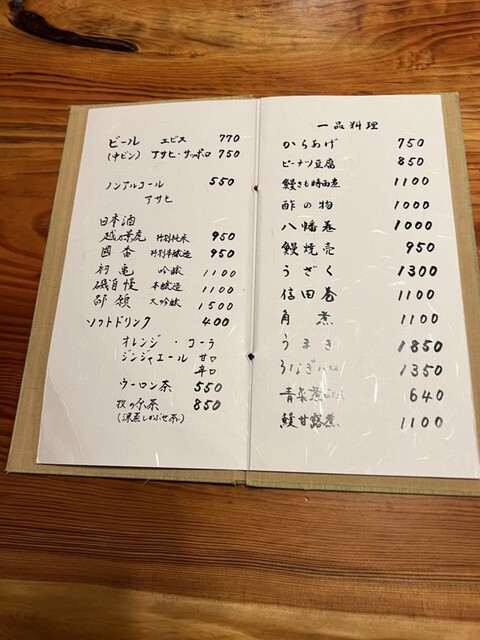 ビール エビス 770
(中ビン) アサヒ・サッポロ 750
ノンアルコール 550
アサヒ
日本酒
越乃景虎 特別純米 950
國香 特別本醸造 950
初亀 吟醸 1100
磯自慢 本醸造 1100
吟醸 大吟醸 1500
ソフトドリンク 400
オレンジ・コーラ
ジンジャエール 甘口
辛口
ウーロン茶 550
牧の原茶 850
(深蒸しかぶせ茶)
一品料理
からあげ 750
ピーナツ豆腐 850
鰻きも時雨煮 1100
酢の物 1000
八幡巻 1000
鰻焼売 950
うざく 1300
信田巻 1100
角煮 1100
うまき 1850
うなぎ 1350
青菜煮 640
鯉甘露煮 1100